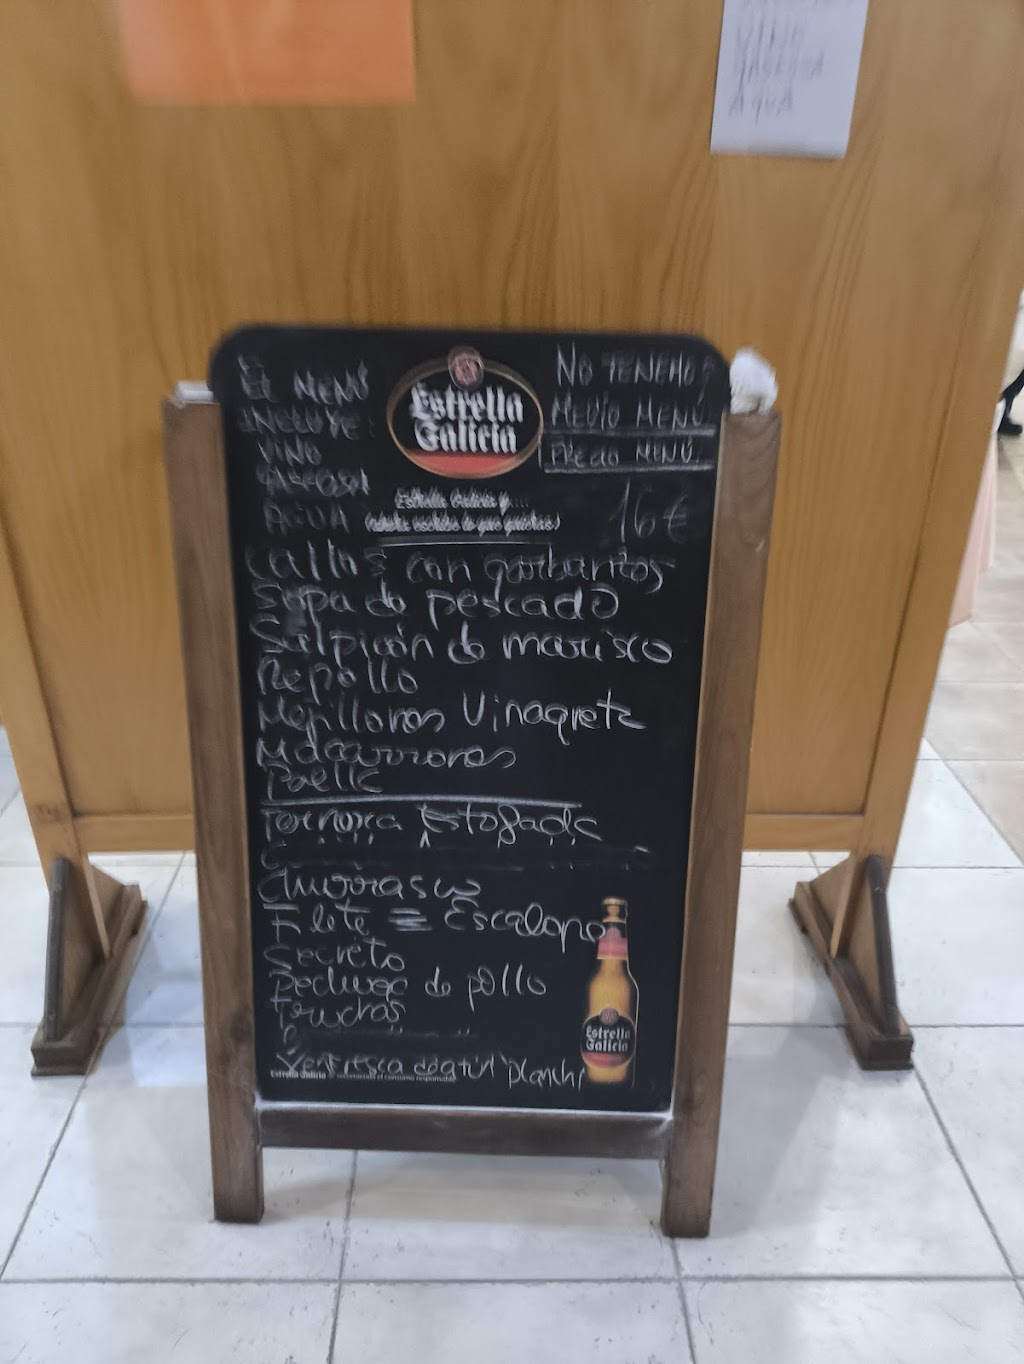 VINO
GASEOSA
AGUA
EL MENÚ
INCLUYE:
VINO
GASEOSA
AGUA
Estrella
Galicia
Estrella Galicia y....
NO TENEMOS
MEDIO MENÚ
PRECIO MENÚ.
16€
Callos con garbanzos
Sopa de pescado
Salpicón de marisco
Repollo
Mejillones Vinagreta
Macarrones
Paella
Ternera Estofada
Churrasco
Filete = Escalope
Secreto
Pechuga de pollo
Truchas
Ventresca de atún Plancha
Estrella Galicia recomienda el consumo responsable
Estrella
Galicia